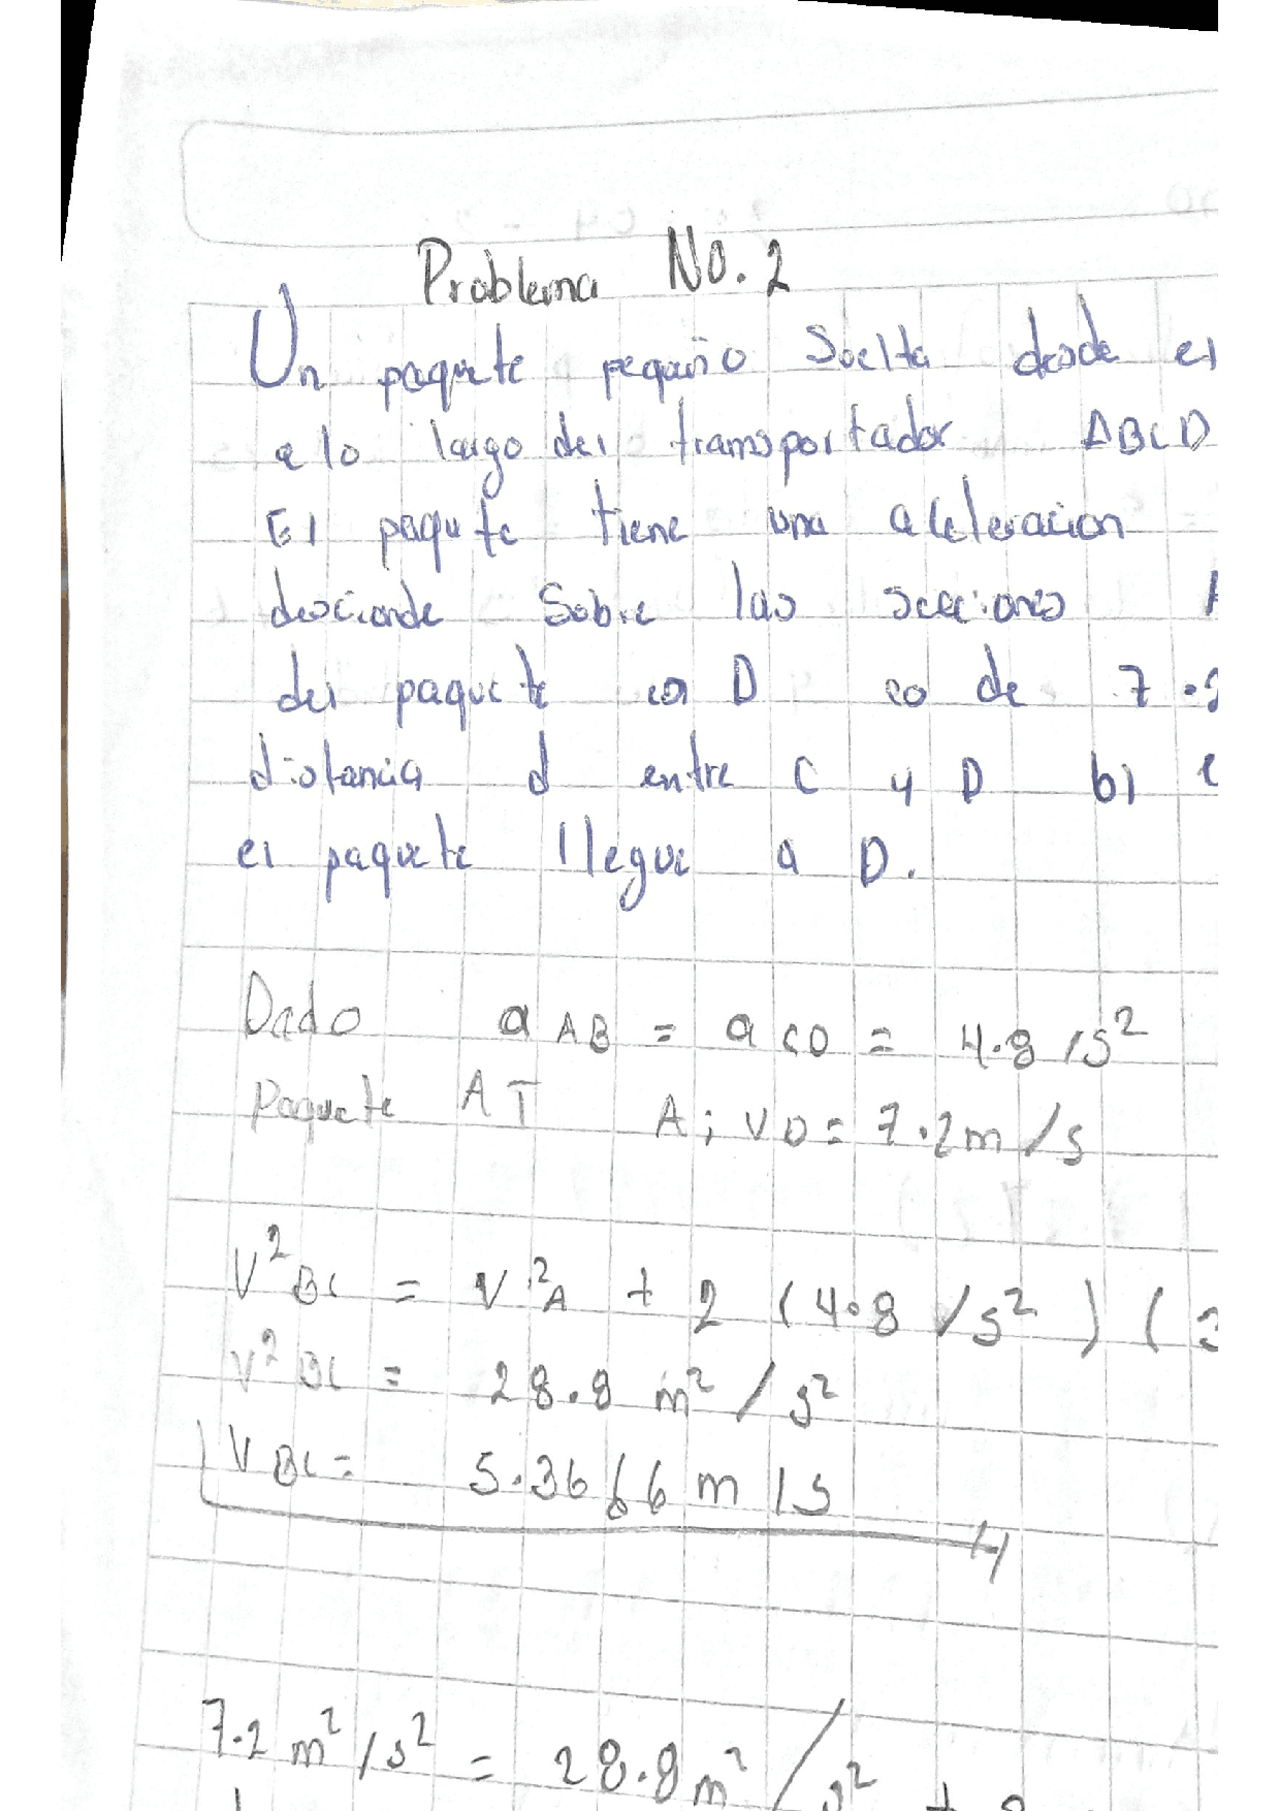 Problema No. 2
Un paquete pequeño Suelta desde el
a lo largo del transportador ABCD
El paquete tiene una aceleracion
desciende Sobre las secciones
del paquete en D es de 7.2
distancia d entre C y D b) e
el paquete llegue a D.
Dado a AB = a CD = 4.8 /s²
Paquete AT A; VD = 7.2 m/s
V²BC = V²A + 2 (4.8 /s²) (3
V²BC = 28.8 m²/s²
VBC = 5.3666 m/s
7.2 m²/s² = 28.8 m²/s² +